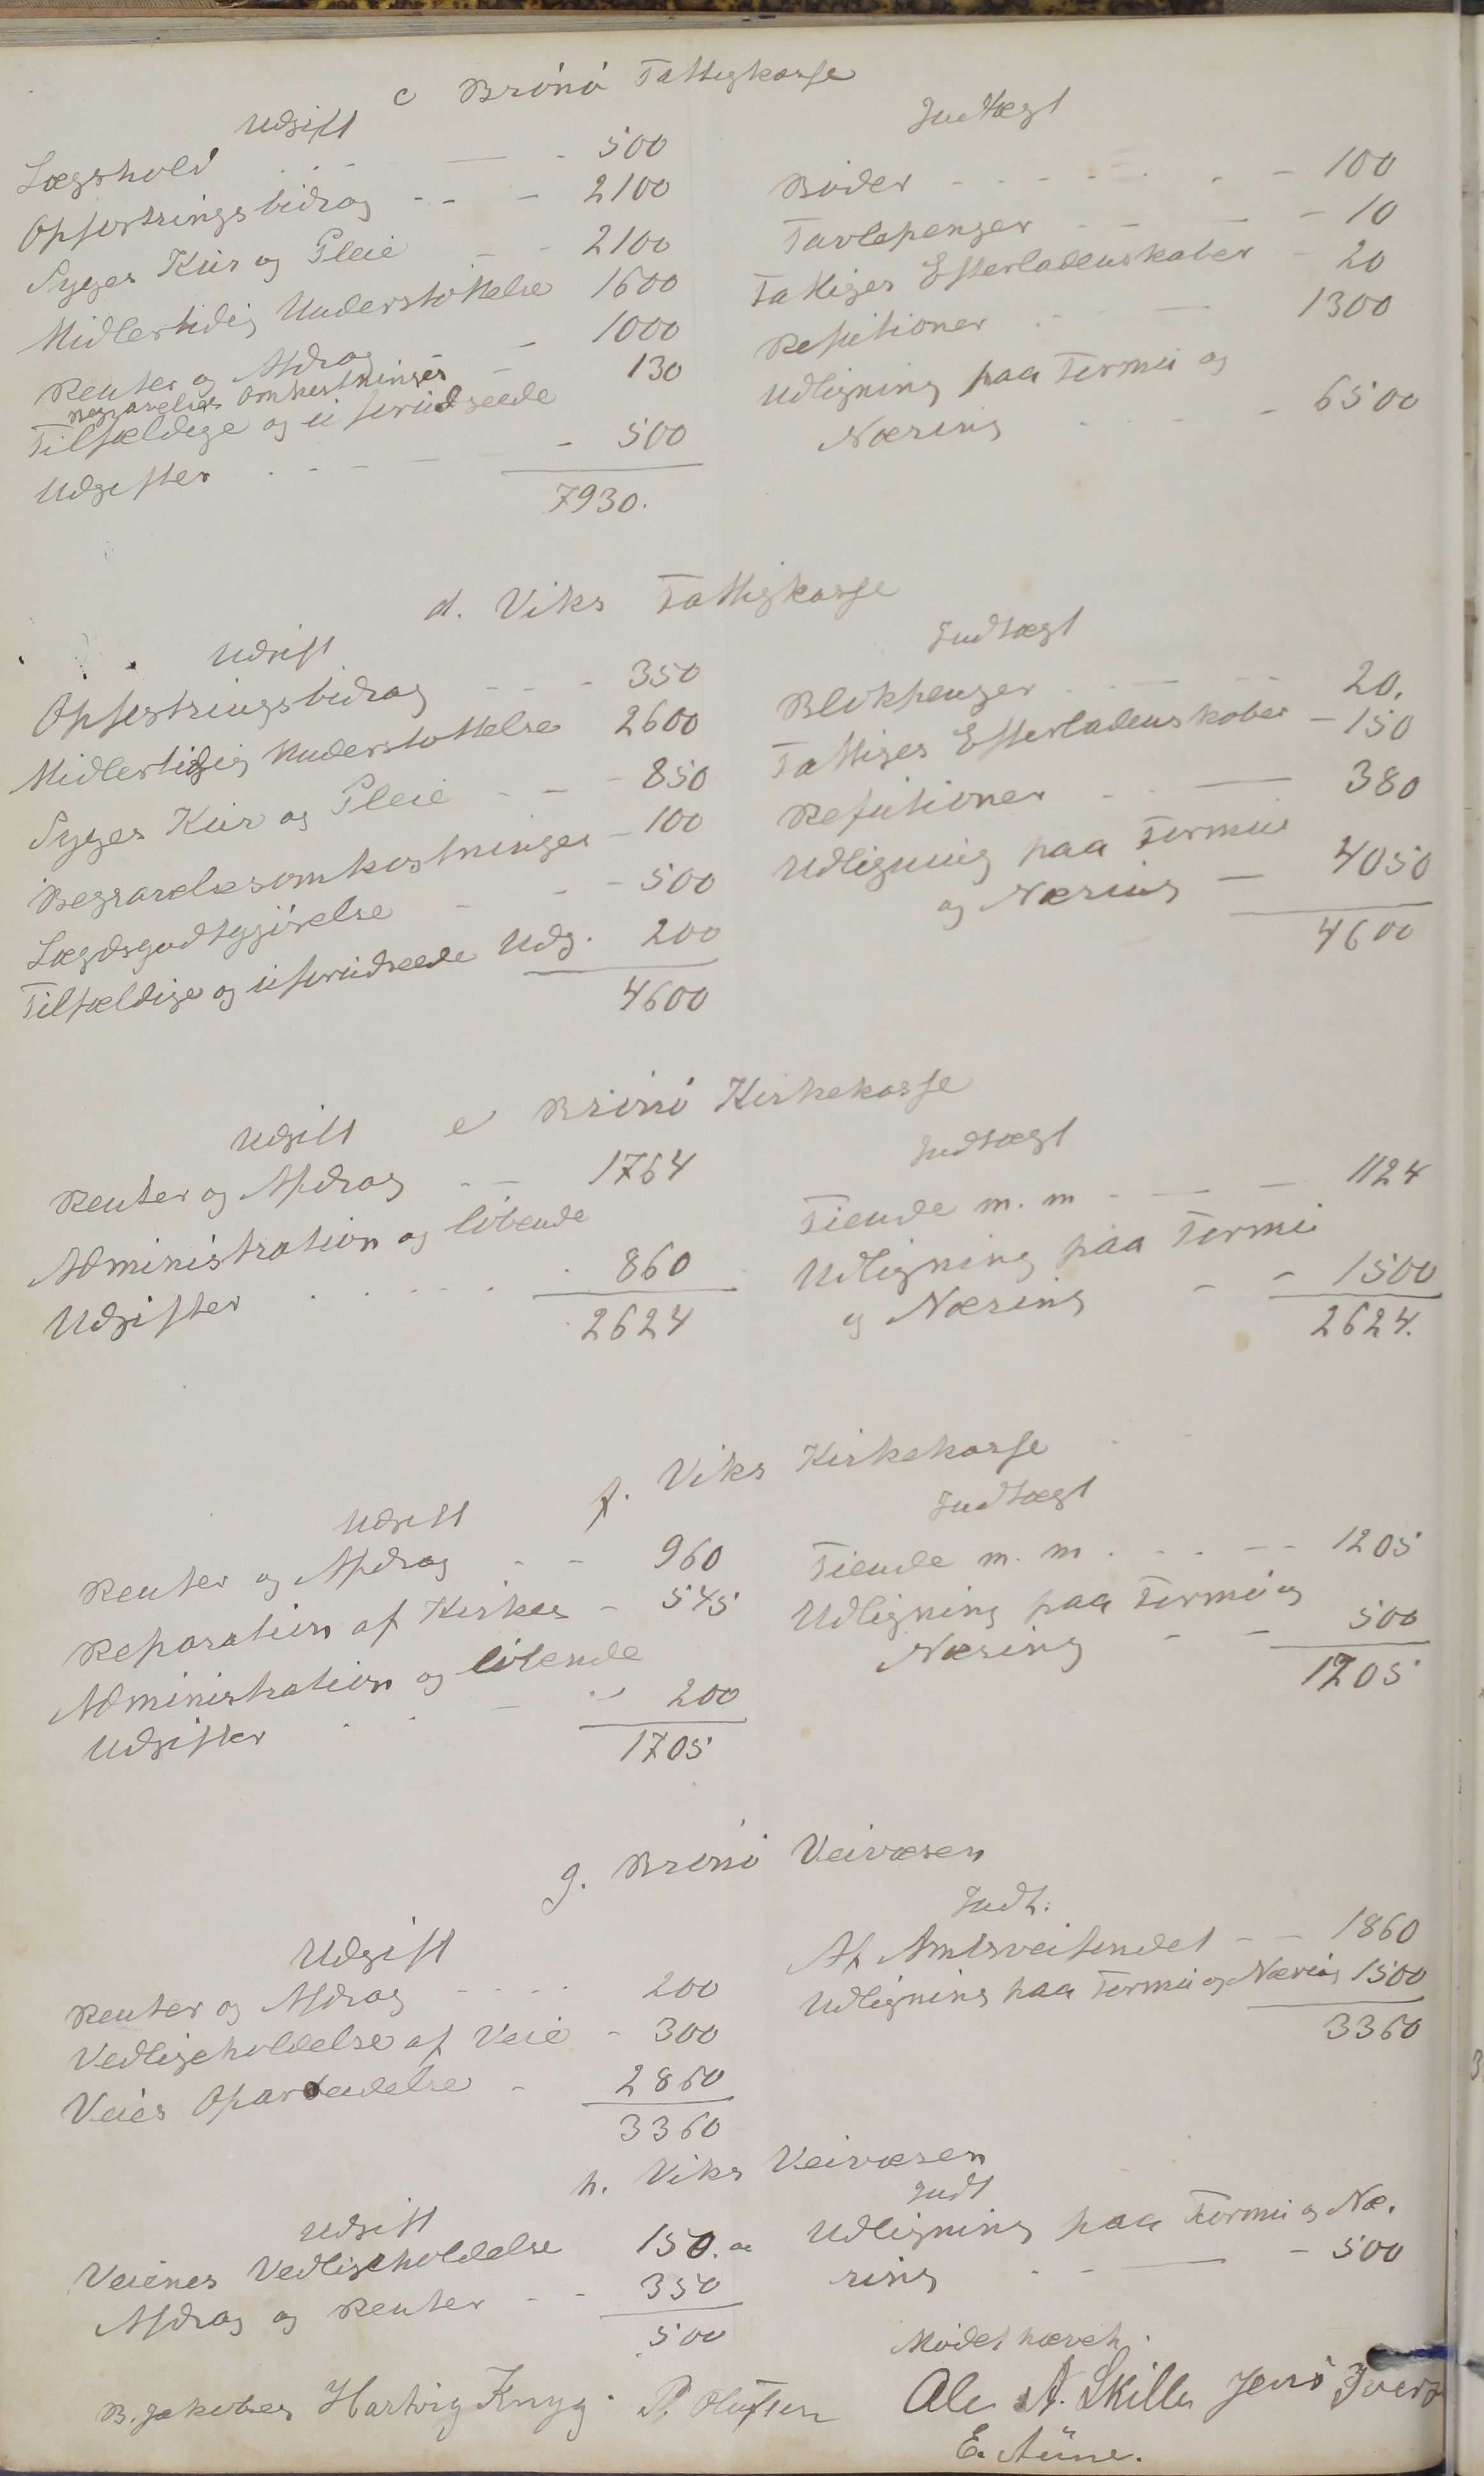 c Brönö Fattigkasse
Udgift
Lægshold - - - 500
Opfostringsbidrag - - - 2100
Syges Kur og Pleie - - 2100
Midlertidig Understöttelse 1600
Renter og Afdrag - 1000
Begravelses Omkostninger - 130
Tilfældige og uforudseede
Udgifter - - - - 500
7930.
Indtægt
Böder - - - - - - - 100
Tavlepenger - - - - 10
Fattiges Efterladenskaber - 20
Refutioner - - - 1300
Udligning paa Formue og
Næring - - - - 6500
d. Viks Fattigkasse
Udgift
Opfostringsbidrag - - - 350
Midlertidig Understöttelse 2600
Syges Kur og Pleie - - - 850
Begravelsesomkostninger - 100
Lægdsgodtgjörelse - - - 500
Tilfældige og uforudseede Udg. 200
4600
Indtægt
Blokpenger - - - - 20.
Fattiges Efterladenskaber - 150
Refutioner - - - 380
Udligning paa Formue
og Næring - 4050
4600
e Brönö Kirkekasse
Udgift
Renter og Afdrag - - 1764
Administration og löbende
Udgifter - - - - - 860
2624
Indtægt
Tiende m. m - - - 1124
Udligning paa Formu
og Næring - - 1500
2624.
f. Viks Kirkekasse
Udgift
Renter og Afdrag - - 960
Reparation af Kirken - 545
Administration og löbende
Udgifter - - - - 200
1705
Indtægt
Tiende m. m. - - - - 1205
Udligning paa Formu og
Næring - - 500
1705
g. Brönö Veivæsen
Udgift
Renter og Afdrag - - - - 200
Vedligeholdelse af Veie - 300
Veies Oparbeidelse - 2860
3360
Indt.
Af Amtsveifondet - - 1860
Udligning paa Formue og Næring 1500
3360
h. Viks Veivæsen
Udgift
Veienes Vedligeholdelse 150.
Afdrag og Renter - - 350
500
Indt
Udligning paa Formue og Næ.
ring - - - - 500
Mödet hævet.
B. Jakobsen Hartvig Kryg. P. Olufsen Ole A. Skille Jens Iver
E. Aune.